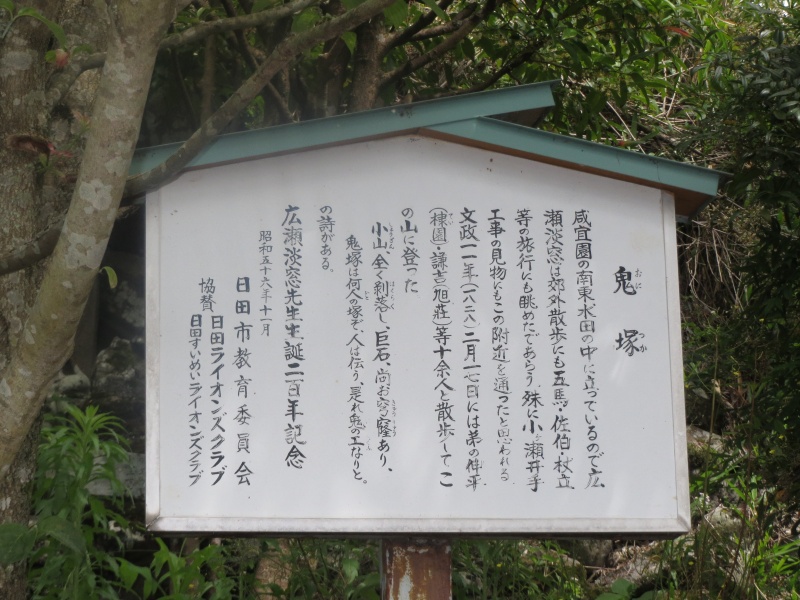 鬼塚
おに
つか
咸宜園の南東水田の中に立っているので広
瀬淡窓は郊外散歩にも五馬・佐伯・杖立
等の旅行にも眺めたであらう 殊に小ヶ瀬井手
工事の見物にもこの附近を通ったと思われる
文政一一年(一八二八)二月一七日には弟の伸平
(棣園)・謙吉(旭荘)等十余人と散歩してこ
の山に登った
小山、全く剥落し、巨石、尚お穹窿あり、
鬼塚は何人の塚ぞ、人は伝う、是れ鬼の工なりと。
の詩がある。
広瀬淡窓先生生誕二百年記念
昭和五十六年十一月
日田市教育委員会
協賛 日田ライオンズクラブ
日田すいめいライオンズクラブ